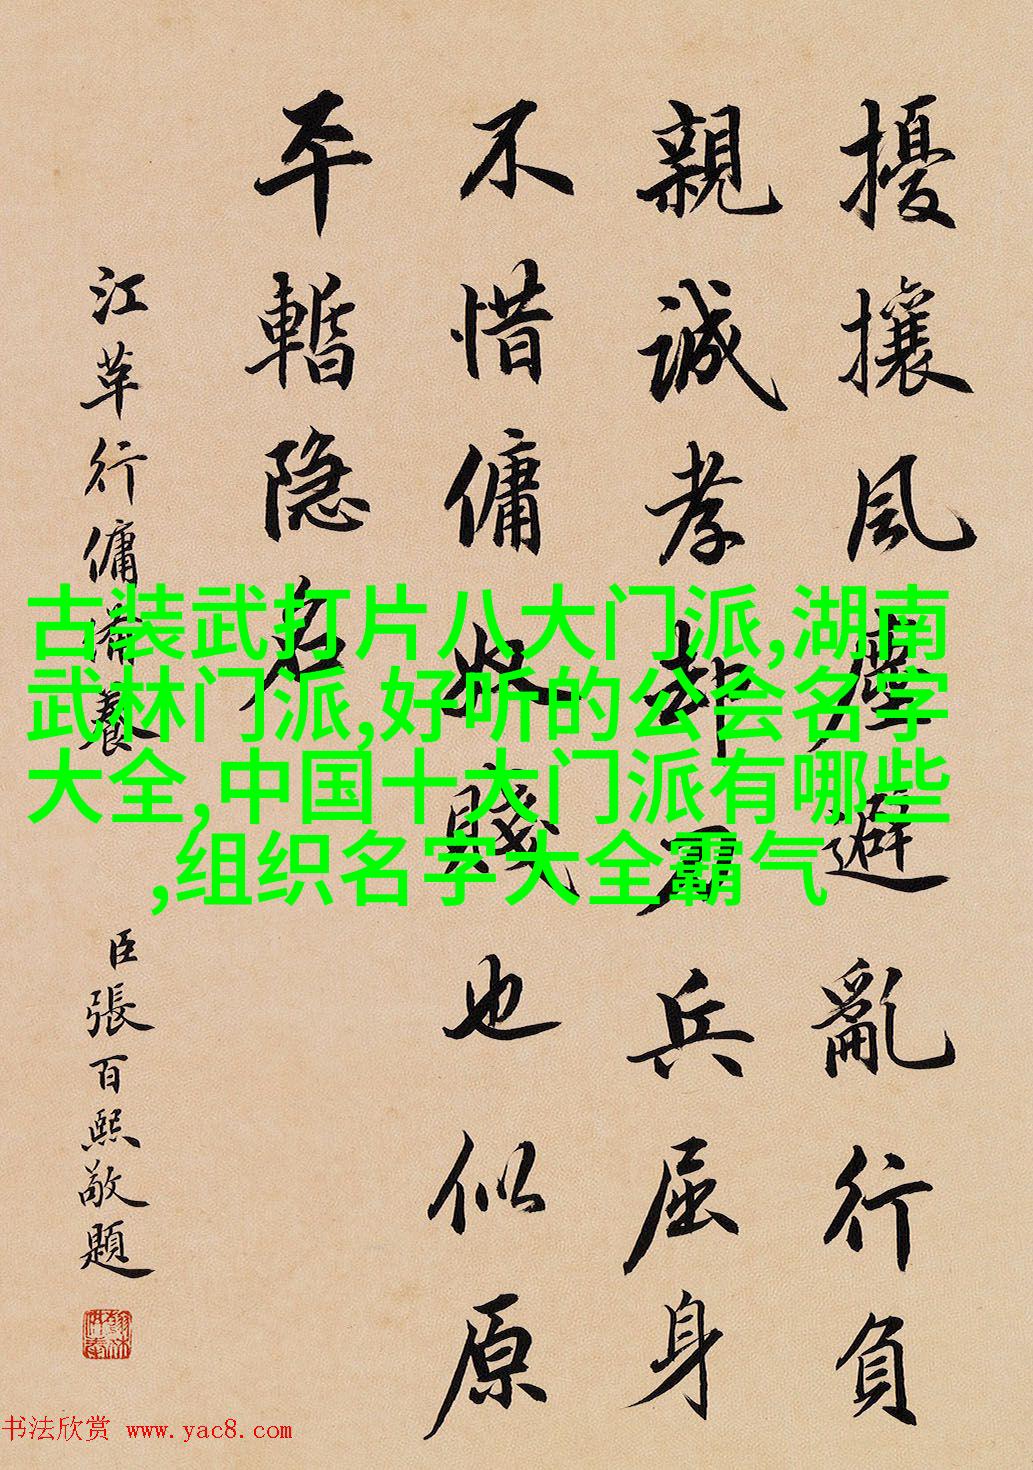 擾攘風塵避亂行負
親誠孝却刀兵屈身
不惜傭奴賤也似原
平暫隐名
江革行傭養
臣張百熙敬題
古装武打片八大门派,湖南
武林门派,好听的公会名字
大全,中国十大门派有哪些
,组织名字大全霸气
书法欣赏 www.yac8.com